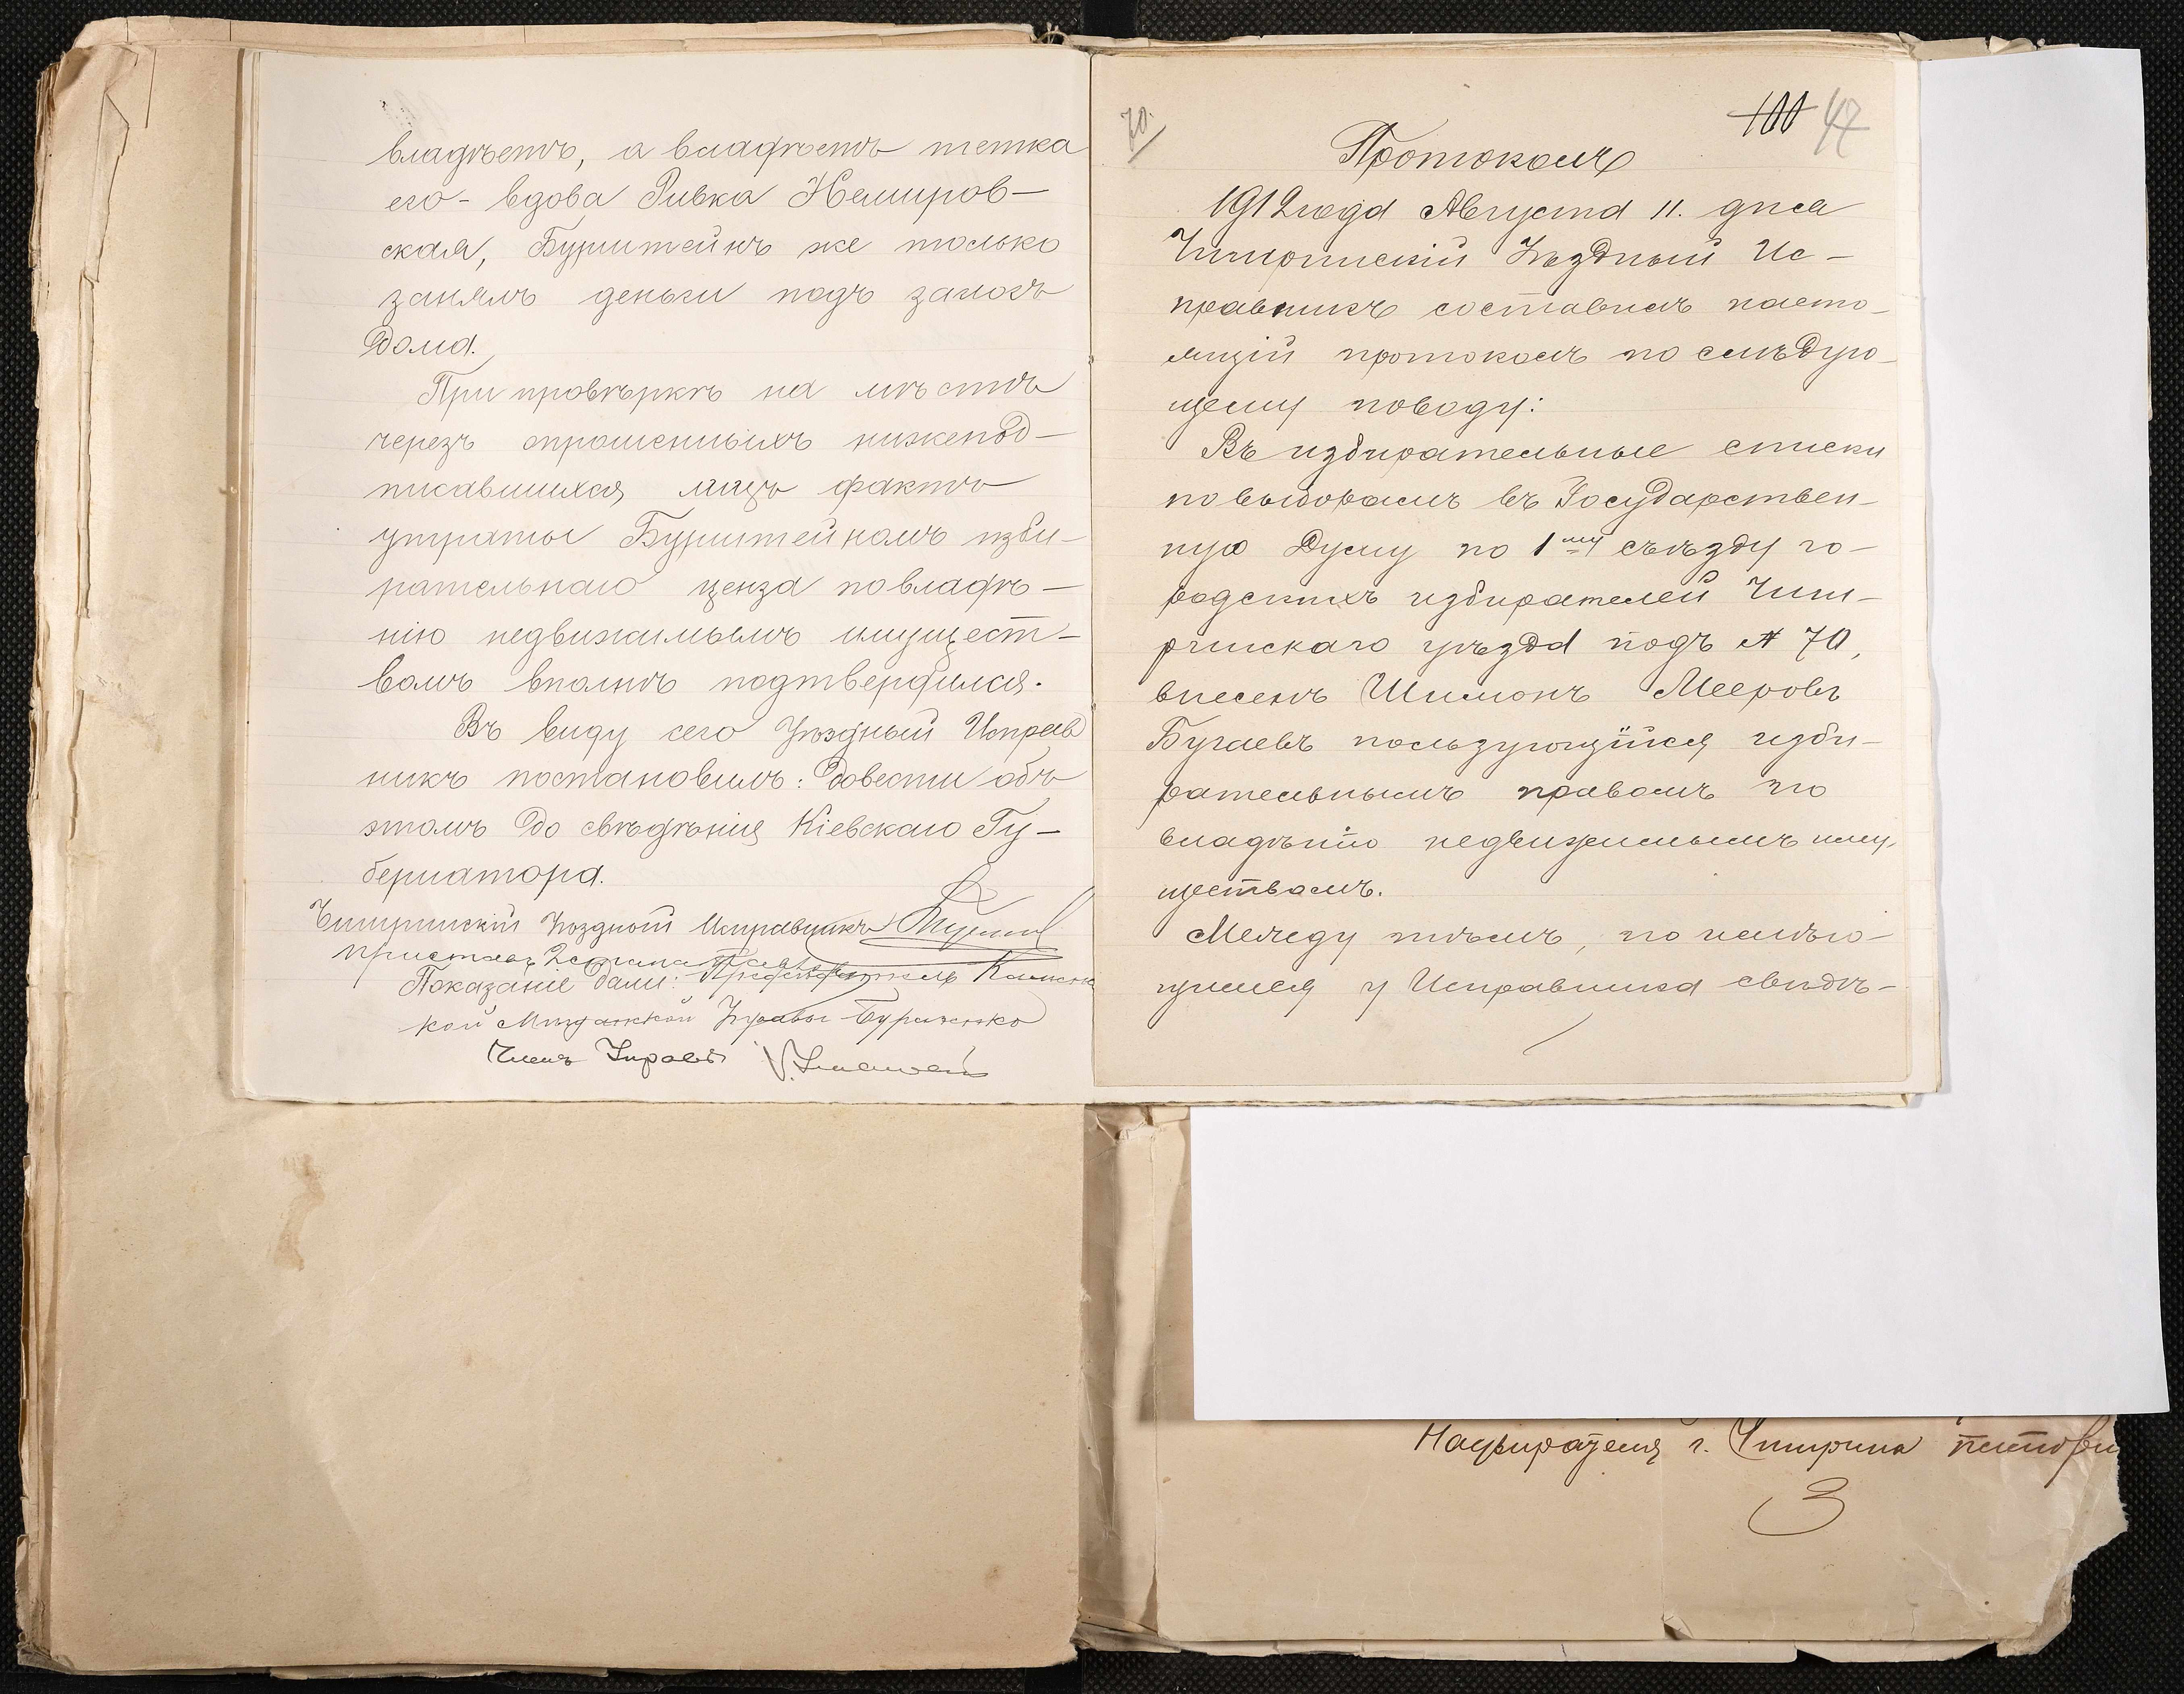 владѣетъ, а владѣетъ тетка
его - вдова Ривка Немиров-
ская, Бурштейнъ же только
занялъ деньги подъ залогъ
дома.
При провѣркѣ на мѣстѣ
черезъ опрошенныхъ нижепод-
писавшихся лицъ фактъ
утраты Бурштейномъ изби-
рательнаго ценза по владѣ-
нію недвижимымъ имущест-
вомъ вполнѣ подтвердился.
Въ виду сего Уѣздный Исправ
никъ постановилъ: Довести объ
этомъ до свѣдѣнія Кіевскаго Гу-
бернатора.
Чигиринскій Уѣздный Исправникъ
Приставъ 2 стана
Показаніе дали: Предсѣдатель Каменс
кой Мѣщанской Управы Бурченко
Членъ Управы
70.
100 47
Протоколъ
1912 года Августа 11. дня
Чигиринскій Уѣздный Ис-
правникъ составилъ насто-
ящій протоколъ по слѣдую-
щему поводу:
Въ избирательные списки
по выборамъ въ Государствен-
ную Думу по 1му съѣзду го-
родскихъ избирателей Чиги-
ринскаго уѣзда подъ № 70,
внесенъ Шимонъ Мееровъ
Бугаевъ пользующійся изби-
рательнымъ правомъ по
владѣнію недвижимымъ иму-
ществомъ.
Между тѣмъ, по имѣю-
щимся у Исправника свѣдѣ-
г. Чигирина